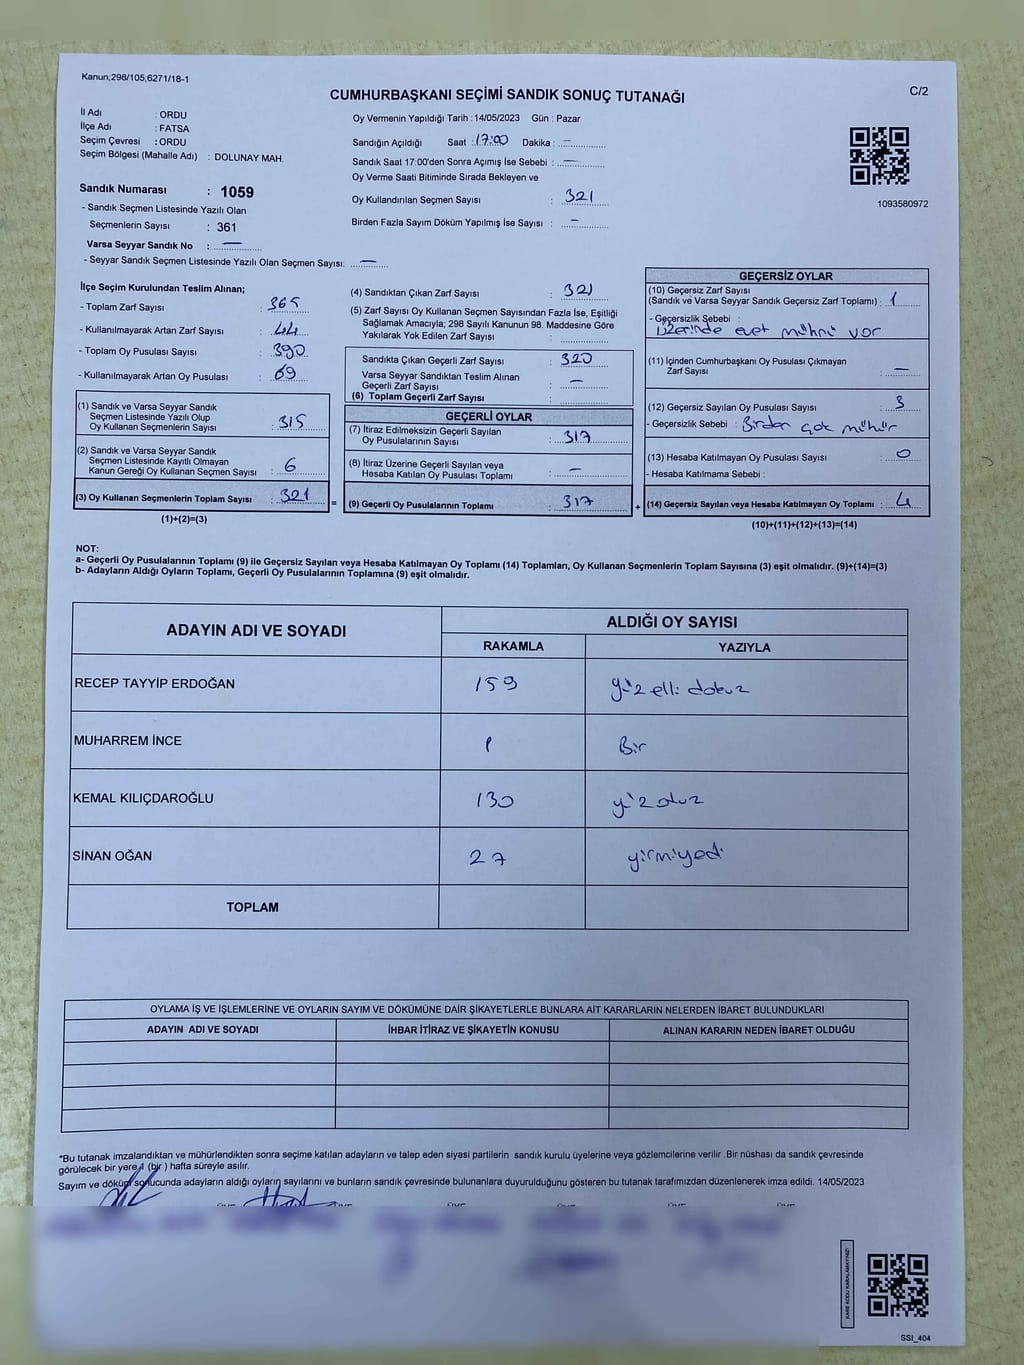 Kanun;298/105,6271/18-1
C/2
CUMHURBAŞKANI SEÇİMİ SANDIK SONUÇ TUTANAĞI
İl Adı : ORDU
İlçe Adı : FATSA
Seçim Çevresi : ORDU
Seçim Bölgesi (Mahalle Adı) : DOLUNAY MAH.
Sandık Numarası : 1059
- Sandık Seçmen Listesinde Yazılı Olan
Seçmenlerin Sayısı : 361
Varsa Seyyar Sandık No : —
- Seyyar Sandık Seçmen Listesinde Yazılı Olan Seçmen Sayısı: —
Oy Vermenin Yapıldığı Tarih : 14/05/2023 Gün : Pazar
Sandığın Açıldığı Saat : 17:00 Dakika : —
Sandık Saat 17:00'den Sonra Açımış İse Sebebi : —
Oy Verme Saati Bitiminde Sırada Bekleyen ve
Oy Kullandırılan Seçmen Sayısı : 321
Birden Fazla Sayım Döküm Yapılmış İse Sayısı : —
1093580972
İlçe Seçim Kurulundan Teslim Alınan;
- Toplam Zarf Sayısı : 365
- Kullanılmayarak Artan Zarf Sayısı : 44
- Toplam Oy Pusulası Sayısı : 390
- Kullanılmayarak Artan Oy Pusulası : 69
(1) Sandık ve Varsa Seyyar Sandık
Seçmen Listesinde Yazılı Olup
Oy Kullanan Seçmenlerin Sayısı : 315
(2) Sandık ve Varsa Seyyar Sandık
Seçmen Listesinde Kayıtlı Olmayan
Kanun Gereği Oy Kullanan Seçmen Sayısı : 6
(3) Oy Kullanan Seçmenlerin Toplam Sayısı : 321 =
(1)+(2)=(3)
(4) Sandıktan Çıkan Zarf Sayısı : 321
(5) Zarf Sayısı Oy Kullanan Seçmen Sayısından Fazla İse, Eşitliği
Sağlamak Amacıyla; 298 Sayılı Kanunun 98. Maddesine Göre
Yakılarak Yok Edilen Zarf Sayısı :
Sandıkta Çıkan Geçerli Zarf Sayısı : 320
Varsa Seyyar Sandıktan Teslim Alınan
Geçerli Zarf Sayısı : —
(6) Toplam Geçerli Zarf Sayısı :
GEÇERLİ OYLAR
(7) İtiraz Edilmeksizin Geçerli Sayılan
Oy Pusulalarının Sayısı : 317
(8) İtiraz Üzerine Geçerli Sayılan veya
Hesaba Katılan Oy Pusulası Toplamı : —
(9) Geçerli Oy Pusulalarının Toplamı : 317 +
GEÇERSİZ OYLAR
(10) Geçersiz Zarf Sayısı
(Sandık ve Varsa Seyyar Sandık Geçersiz Zarf Toplamı) : 1
- Geçersizlik Sebebi :
üzerinde evet mührü var
(11) İçinden Cumhurbaşkanı Oy Pusulası Çıkmayan
Zarf Sayısı : —
(12) Geçersiz Sayılan Oy Pusulası Sayısı : 3
- Geçersizlik Sebebi : Birden çok mühür
(13) Hesaba Katılmayan Oy Pusulası Sayısı : 0
- Hesaba Katılmama Sebebi :
(14) Geçersiz Sayılan veya Hesaba Katılmayan Oy Toplamı : 4
(10)+(11)+(12)+(13)=(14)
NOT:
a- Geçerli Oy Pusulalarının Toplamı (9) ile Geçersiz Sayılan veya Hesaba Katılmayan Oy Toplamı (14) Toplamları, Oy Kullanan Seçmenlerin Toplam Sayısına (3) eşit olmalıdır. (9)+(14)=(3)
b- Adayların Aldığı Oyların Toplamı, Geçerli Oy Pusulalarının Toplamına (9) eşit olmalıdır.
ADAYIN ADI VE SOYADI ALDIĞI OY SAYISI
RAKAMLA YAZIYLA
RECEP TAYYİP ERDOĞAN 159 yüz elli dokuz
MUHARREM İNCE 1 Bir
KEMAL KILIÇDAROĞLU 130 yüz otuz
SİNAN OĞAN 27 yirmiyedi
TOPLAM
OYLAMA İŞ VE İŞLEMLERİNE VE OYLARIN SAYIM VE DÖKÜMÜNE DAİR ŞİKAYETLERLE BUNLARA AİT KARARLARIN NELERDEN İBARET BULUNDUKLARI
ADAYIN ADI VE SOYADI İHBAR İTİRAZ VE ŞİKAYETİN KONUSU ALINAN KARARIN NEDEN İBARET OLDUĞU
*Bu tutanak imzalandıktan ve mühürlendikten sonra seçime katılan adayların ve talep eden siyasi partilerin sandık kurulu üyelerine veya gözlemcilerine verilir .Bir nüshası da sandık çevresinde
görülecek bir yere 1 (bir ) hafta süreyle asılır.
Sayım ve döküm sonucunda adayların aldığı oyların sayılarını ve bunların sandık çevresinde bulunanlara duyurulduğunu gösteren bu tutanak tarafımızdan düzenlenerek imza edildi. 14/05/2023
KARE KODU KARALAMAYINIZ!
SSI_404